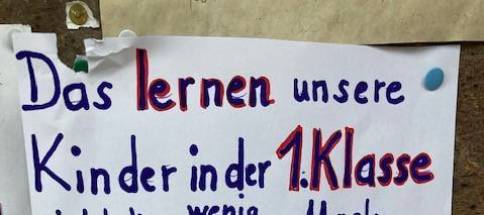 Das lernen unsere
Kinder in der 1. Klasse
wenig